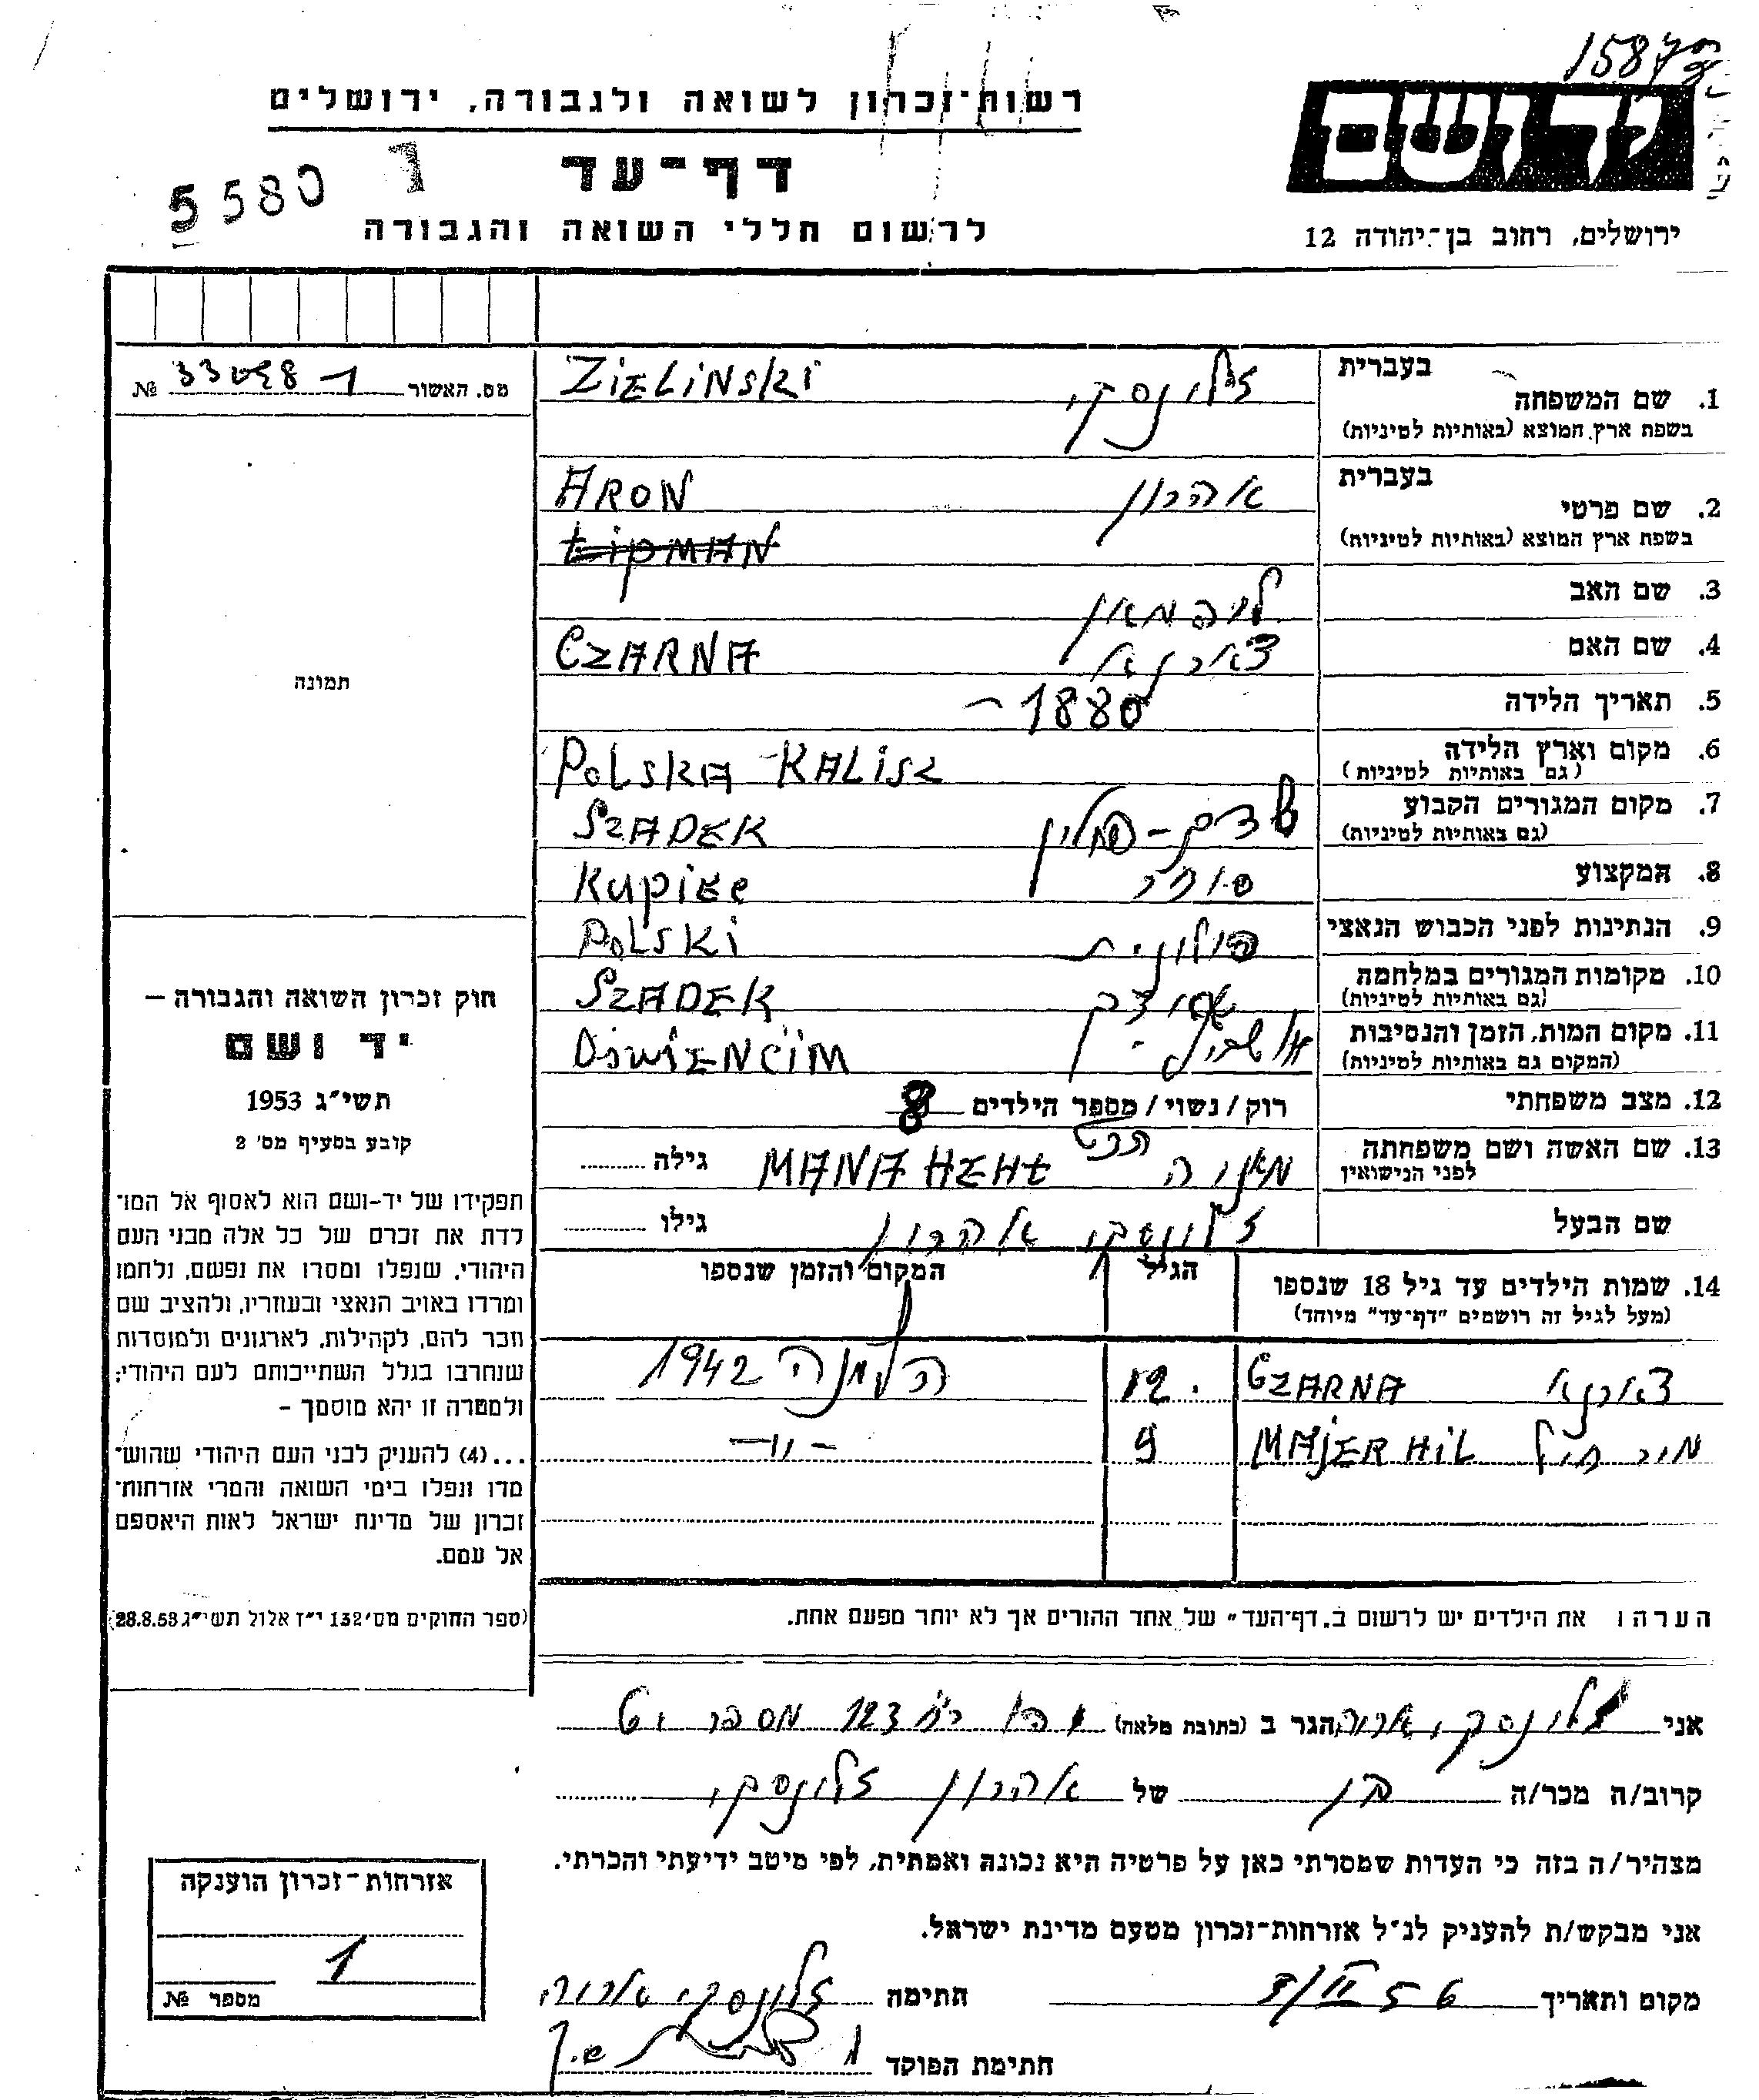 רשות־זכרון לשואה ולגבורה, ירושלים
יד ושם
דף־עד
5580
לרשום חללי השואה והגבורה
ירושלים, רחוב בן־יהודה 12
בעברית
1. שם המשפחה
בשפת ארץ המוצא (באותיות לטיניות)
זלונסקי ZiELiNSKi
בעברית
2. שם פרטי
בשפת ארץ המוצא (באותיות לטיניות)
אהרון ARON
3. שם האב
ליפמאן
4. שם האם צארנא CZARNA
5. תאריך הלידה 1880 –
6. מקום וארץ הלידה POLSKA - KALISZ
(גם באותיות לטיניות)
7. מקום המגורים הקבוע שדק - פולין SZADEK
(גם באותיות לטיניות)
8. המקצוע סוחר KupiEc
9. הנתינות לפני הכבוש הנאצי פולונית POLSKi
10. מקומות המגורים במלחמה SZADEK
(גם באותיות לטיניות)
11. מקום המות, הזמן והנסיבות OSWIENCiM
(המקום גם באותיות לטיניות)
12. מצב משפחתי רוק / נשוי / מספר הילדים 8
13. שם האשה ושם משפחתה מאניה הכט MANA HEHT גילה
לפני הנישואין
שם הבעל זלונסקי אהרון גילו
14. שמות הילדים עד גיל 18 שנספו הגיל המקום והזמן שנספו
(מעל לגיל זה רושמים "דף־עד" מיוחד)
צארנא CZARNA 12 1942
MAJER HiL 9 -"-
הערה: את הילדים יש לרשום ב"דף־העד" של אחד ההורים אך לא יותר מפעם אחת.
מס. האשור №
תמונה
חוק זכרון השואה והגבורה –
יד ושם
תשי"ג 1953
קובע בסעיף מס' 2
תפקידו של יד-ושם הוא לאסוף אל המו־
לדת את זכרם של כל אלה מבני העם
היהודי, שנפלו ומסרו את נפשם, נלחמו
ומרדו באויב הנאצי ובעוזריו, ולהציב שם
וזכר להם, לקהילות, לארגונים ולמוסדות
שנחרבו בגלל השתייכותם לעם היהודי;
ולמטרה זו יהא מוסמך –
...(4) להעניק לבני העם היהודי שהוש־
מדו ונפלו בימי השואה והמרי אזרחות־
זכרון של מדינת ישראל לאות היאספם
אל עמם.
(ספר החוקים מס' 132 י"ז אלול תשי"ג 28.8.53)
אני זלונסקי אריה הגר ב (כתובת מלאה) 123 מספר
קרוב/ה מכר/ה בן של אהרון זלונסקי
מצהיר/ה בזה כי העדות שמסרתי כאן על פרטיה היא נכונה ואמתית, לפי מיטב ידיעתי והכרתי.
אני מבקש/ת להעניק לנ"ל אזרחות־זכרון מטעם מדינת ישראל.
מקום ותאריך חתימה זלונסקי אריה
חתימת הפוקד
אזרחות־זכרון הוענקה
1
מספר №